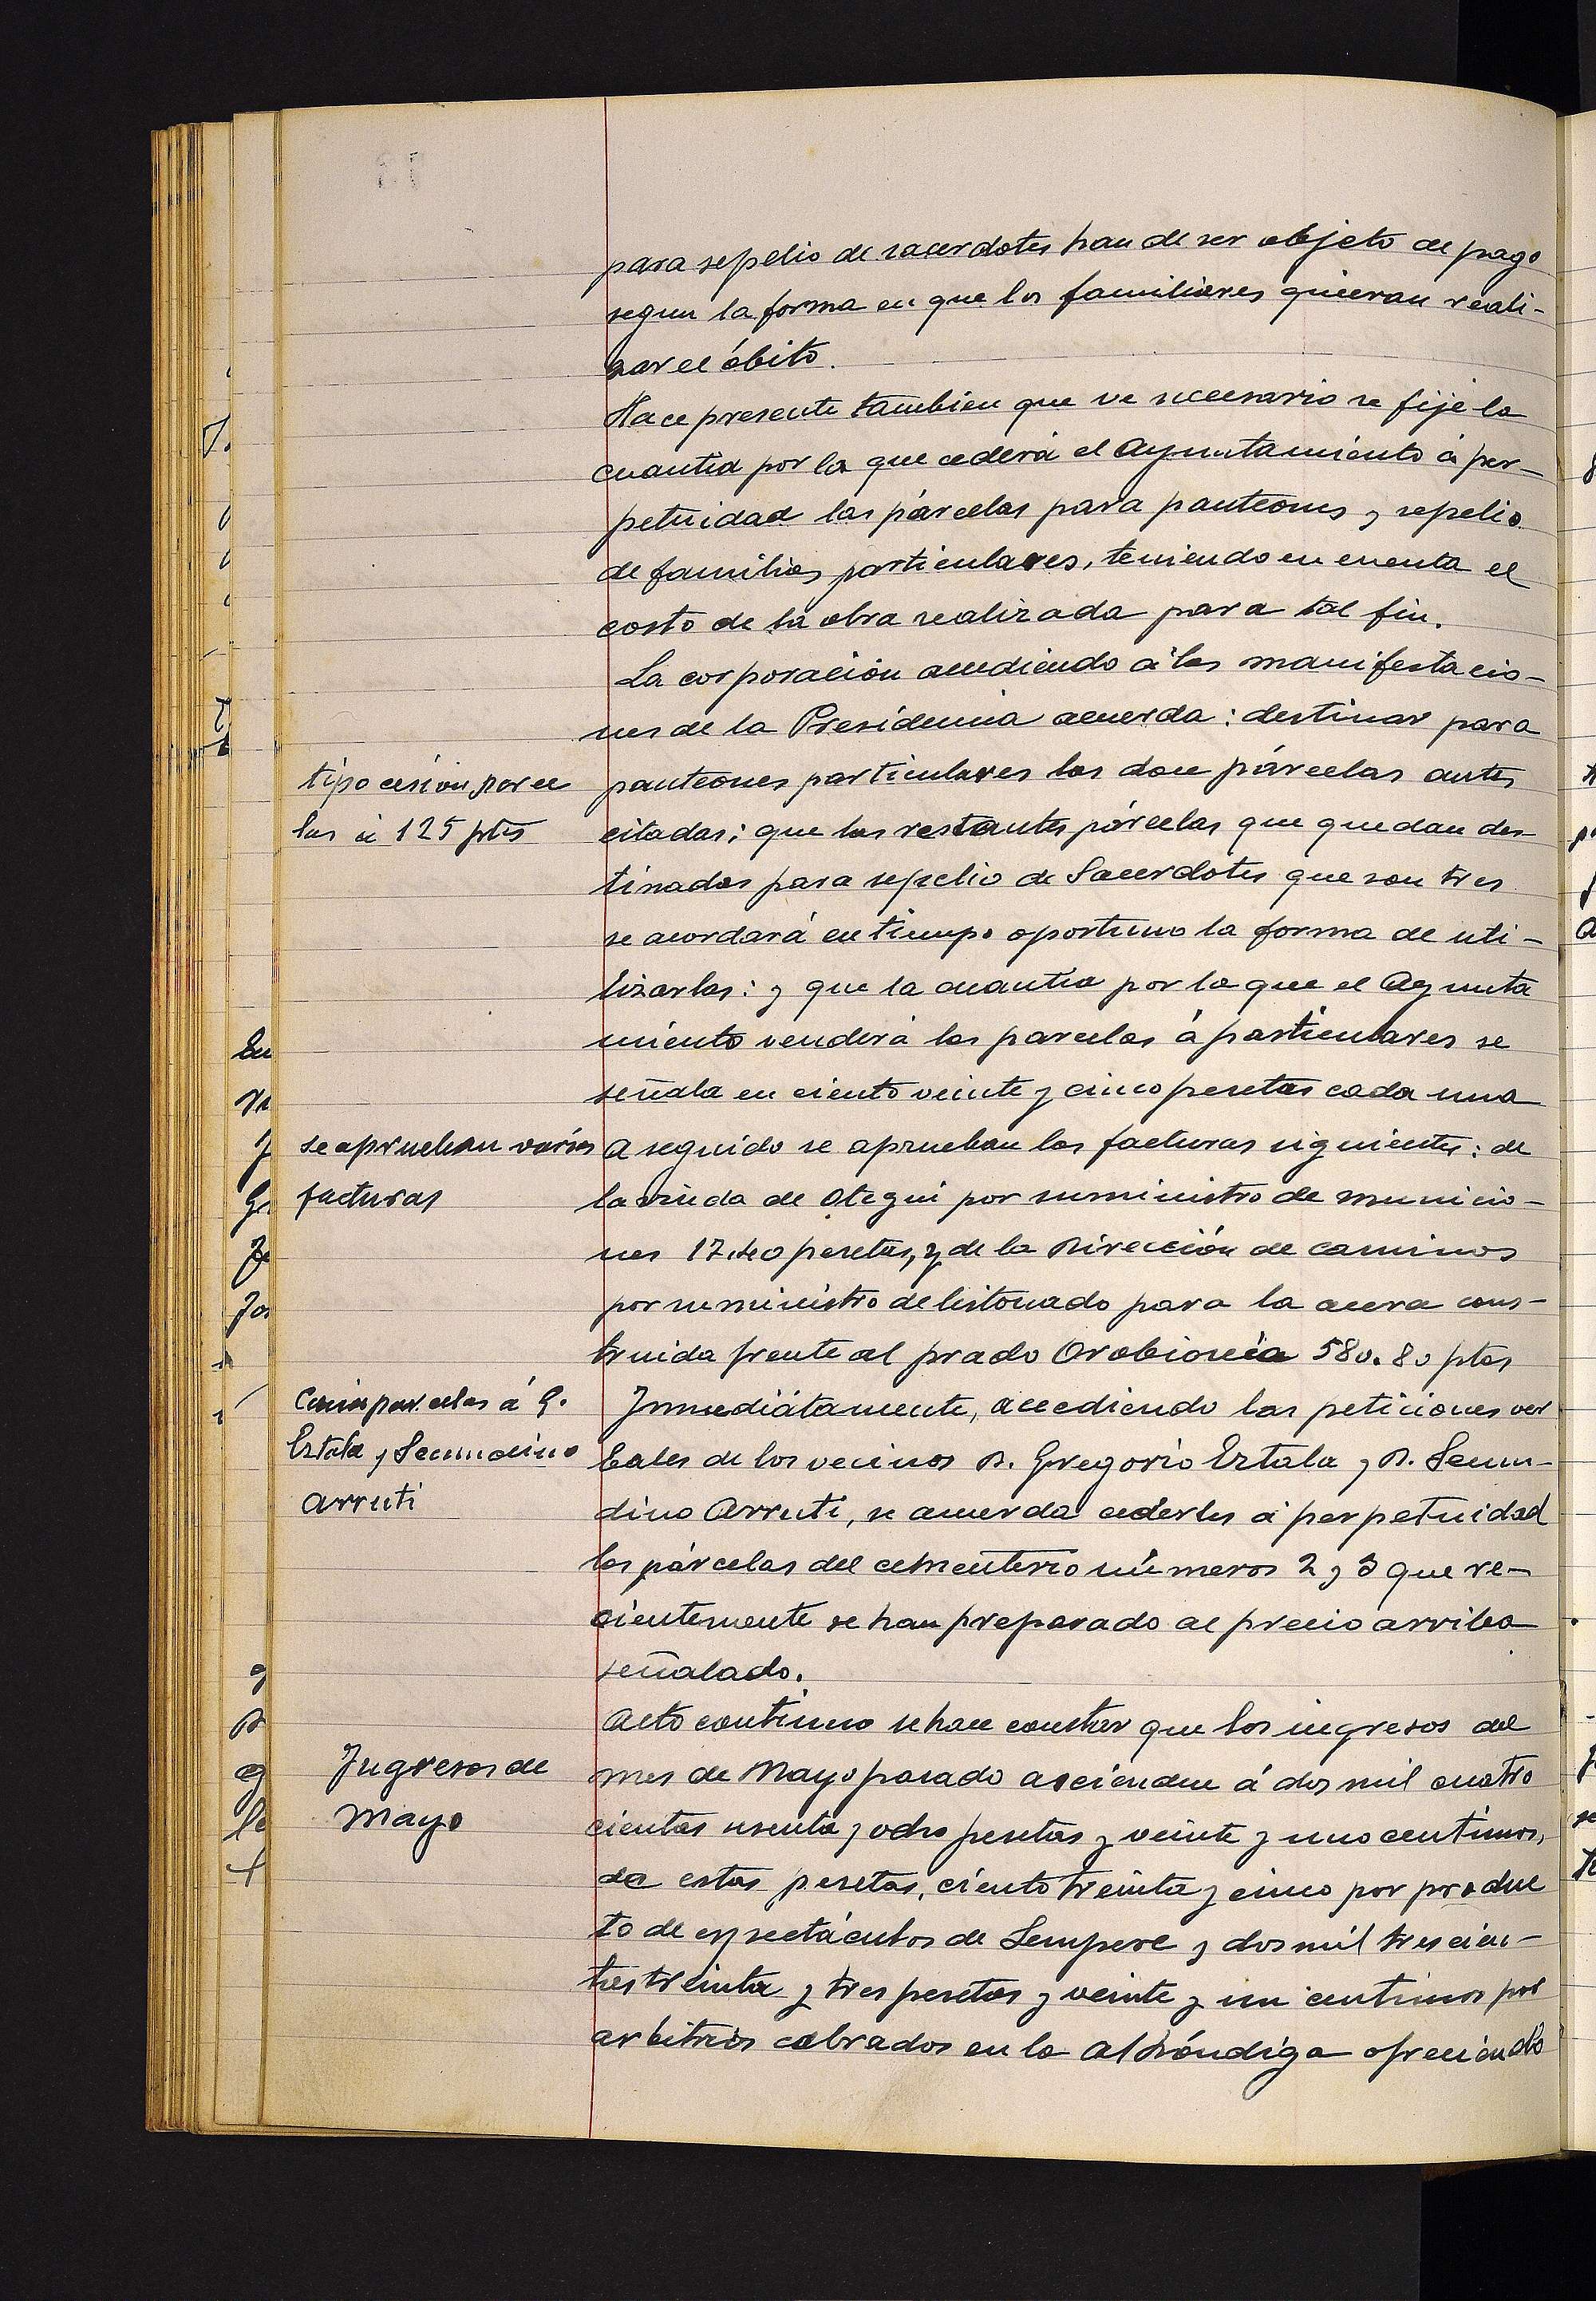 para sepelio de sacerdotes han de ser objeto de pago
segun la forma en que los familiares quieran reali-
zar el óbito.
Hace presente tambien que ve necesario se fije la
cuantia por la que cederá el Ayuntamiento á per-
petuidad las párcelas para panteones y sepelio
de familias particulares, teniendo en cuenta el
costo de la obra realizada para tal fin.
La corporación accediendo á las manifestacio-
nes de la Presidencia acuerda: destinar para
tipo cesión parce
las á 125 ptas
panteones particulares las doce párcelas antes
citadas; que las restantes párcelas que quedan des-
tinadas para sepelio de Sacerdotes que son tres
se acordará en tiempo oportuno la forma de uti-
lizarlas: y que la cuantia por la que el Ayunta
miento venderá las parcelas á particulares se
señala en ciento veinte y cinco pesetas cada una
se aprueban varias
facturas
A seguido se aprueban las facturas siguientes: de
la viuda de Otegui por suministro de municio-
nes 17.40 pesetas, y de la Dirección de caminos
por suministro de listonado para la acera cons-
truida frente al prado Orobioneia 580.80 ptas
Cesión parcelas á G.
Eztala y Secundino
Arruti
Inmediátamente, accediendo las peticiones ver
bales de los vecinos D. Gregorio Eztala y D. Secun-
dino Arruti, se acuerda cederles á perpetuidad
las párcelas del cementerio números 2 y 3 que re-
cientemente se han preparado al precio arriba
señalado.
Acto continuo se hace constar que los ingresos del
Ingresos de
Mayo
mes de Mayo pasado asciendeu á dos mil cuatro
cientas sesenta y ocho pesetas y veinte y uno centimos,
de estas pesetas, ciento treinta y cinco por produc
to de espectáculos de Sempere y dos mil trescien-
tas treinta y tres pesetas y veinte y un centimos por
arbitrios cobrados en la Alhóndiga ofreciendo